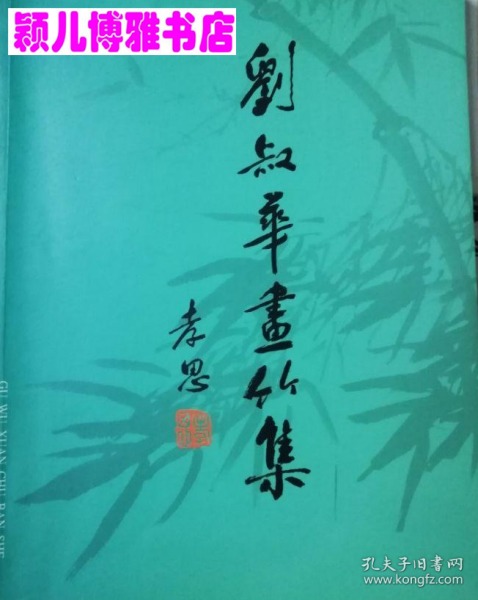 颖儿博雅书店
劉叔華畫竹集
孝思
GU WU XUAN CHU BAN SHE
孔夫子旧书网
www.kongfz.com